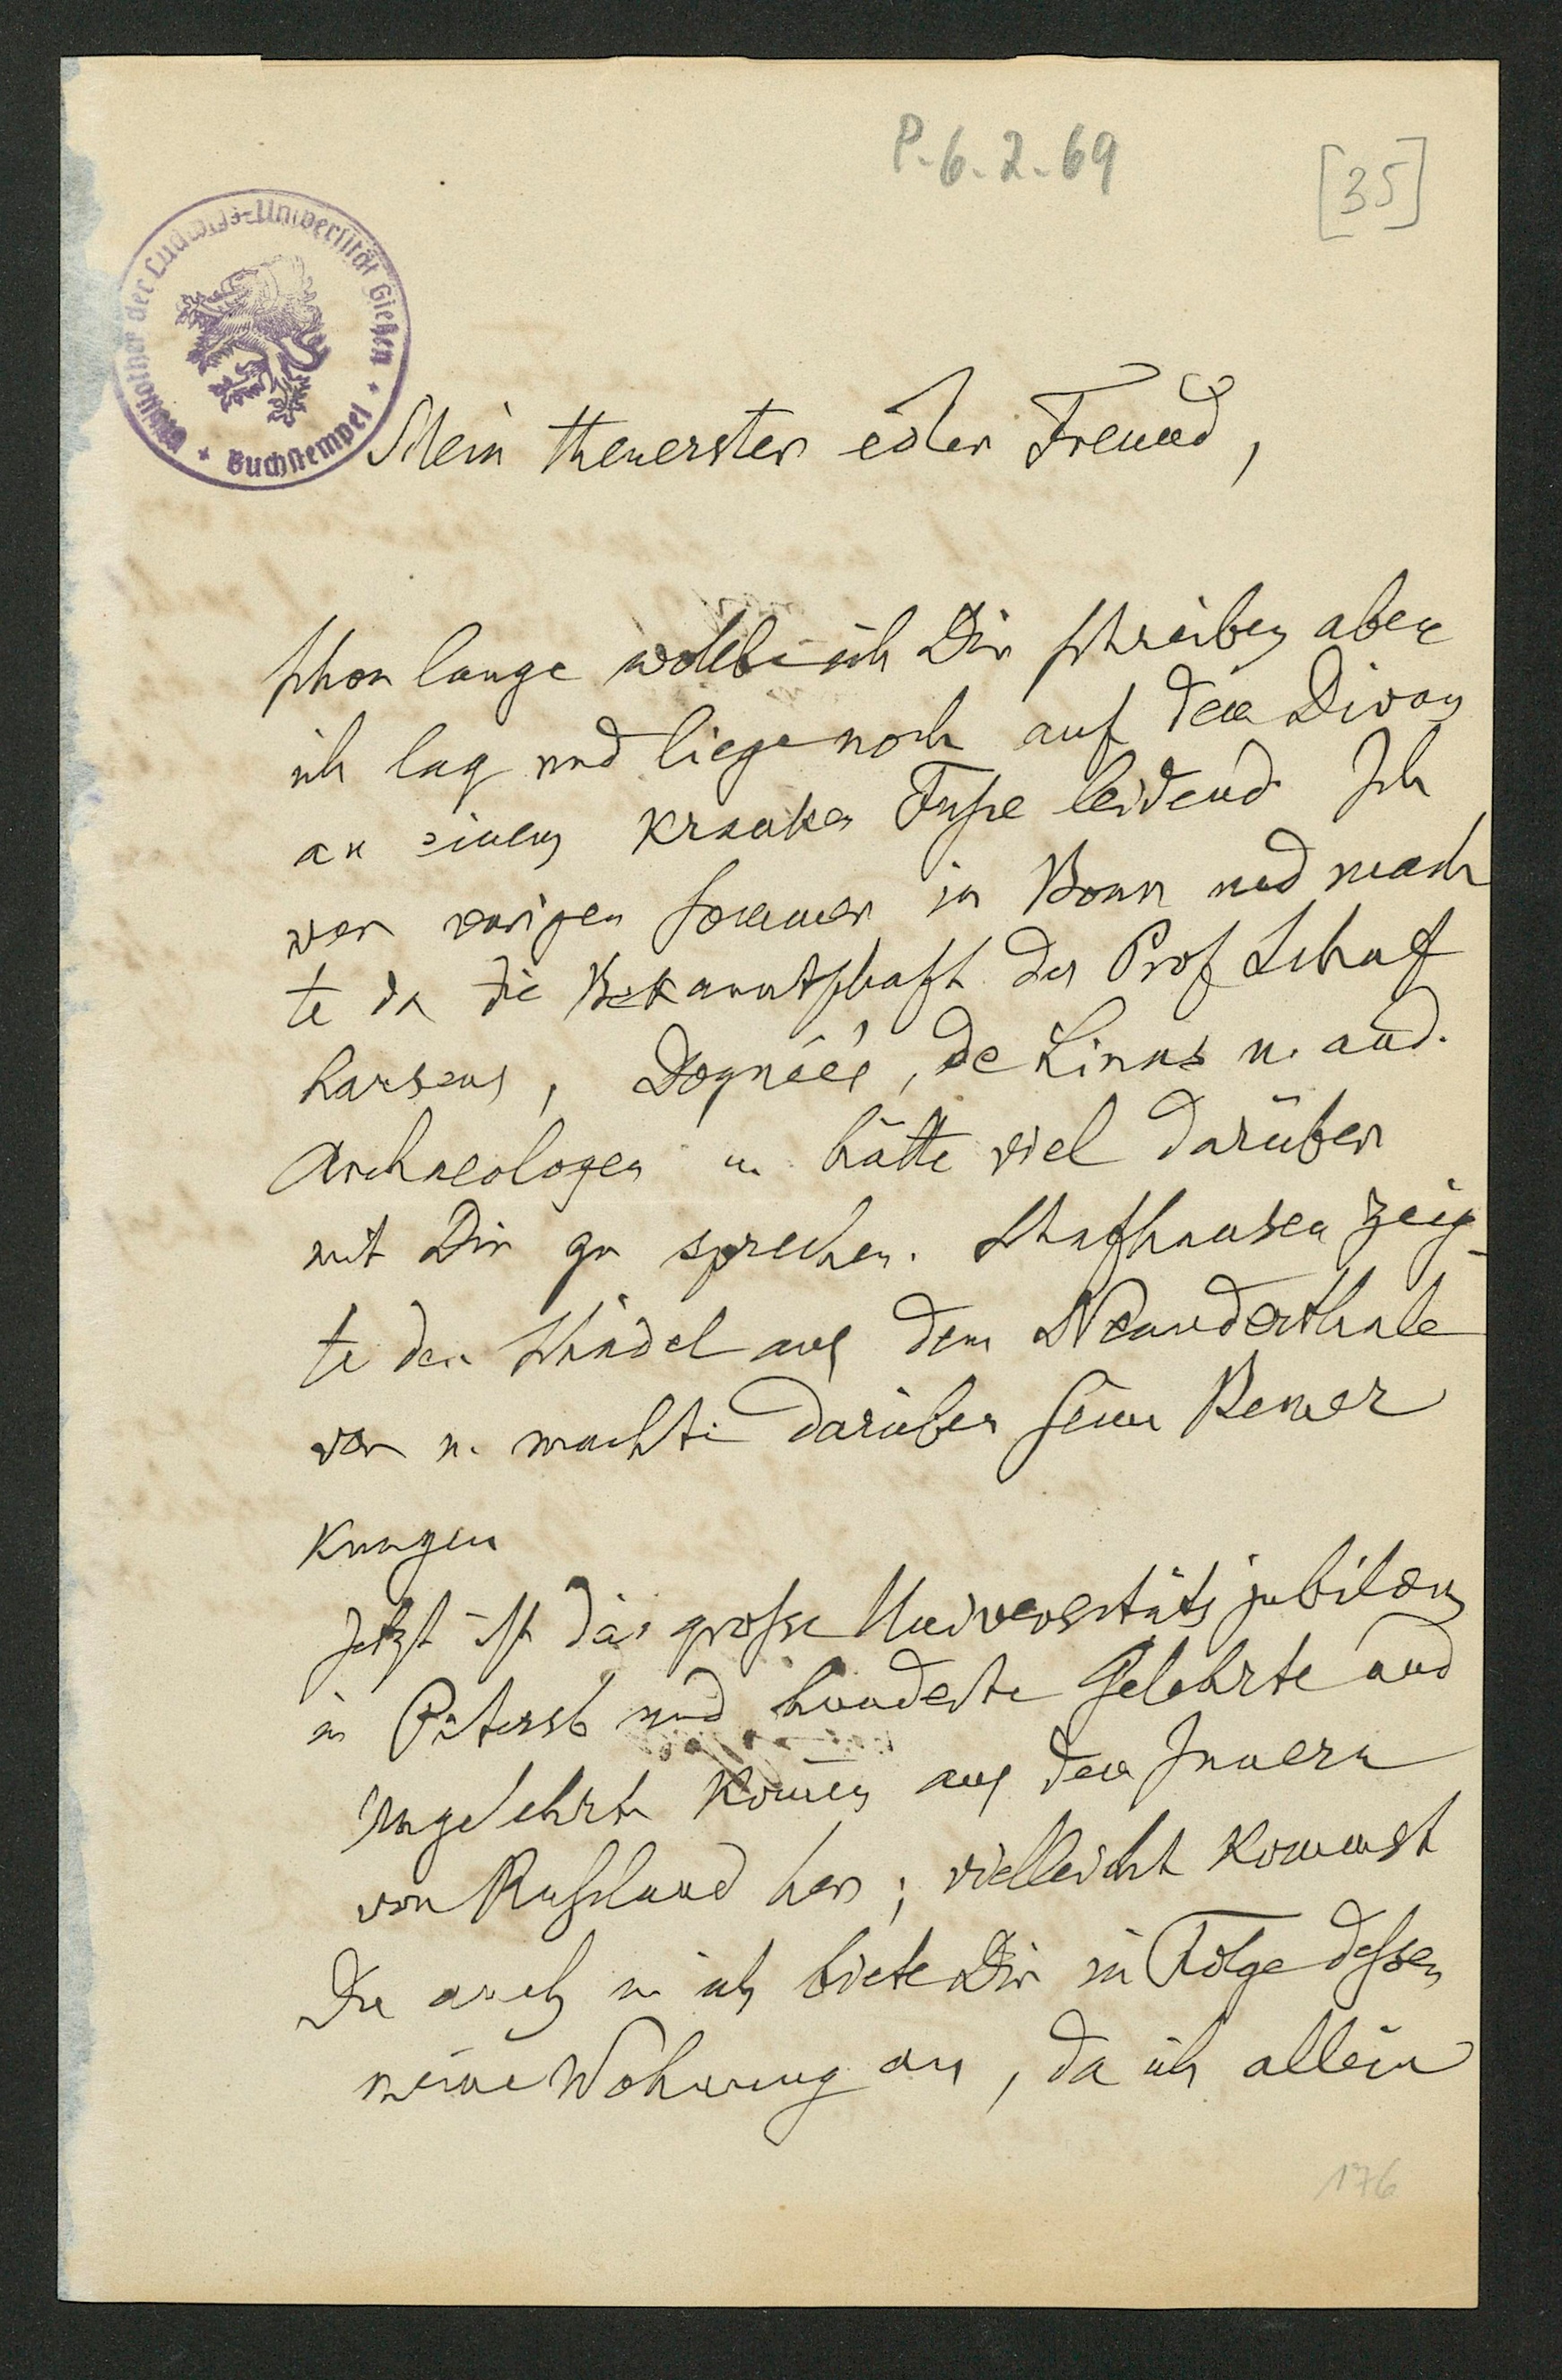 P. 6. 2. 69
[35]
Bibliothek der Ludwigs-Universität Gießen * Buchstempel *
Mein theuerster edler Freund,
schon lange wollte ich Dir schreiben aber
ich lag und liege noch auf dem Divan
an einem kranken Fuße leidend. Ich
war vorigen Sommer in Bonn und mach
te da die Bekanntschaft des Prof Schaf
hausens, Dognées, de Linas u. and.
Archaeologen u. hätte viel darüber
mit Dir zu sprechen. Schafhausen zeig-
te den Schädel aus dem Neanderthale
vor u. machte darüber seine Bemer
kungen
Jetzt ist das große Universitätsjubiläum
in Petersb und hunderte Gelehrte und
Ungelehrte kom̄en aus dem Innern
von Rußland her; vielleicht kommst
Du auch u. ich biete Dir in Folge dessen
meine Wohnung an, da ich allein
176